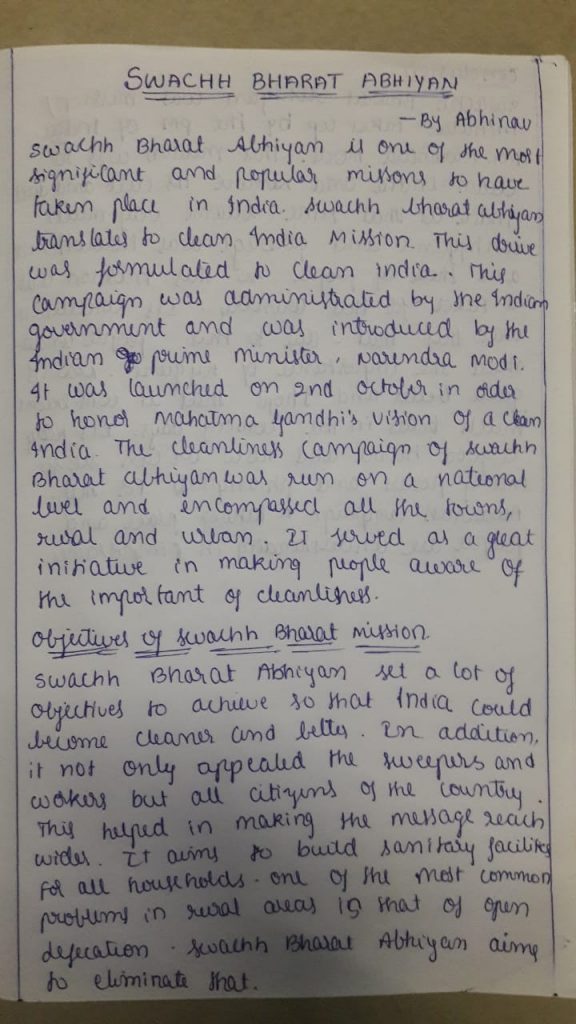 SWACHH BHARAT ABHIYAN
- By Abhinav
Swachh Bharat Abhiyan is one of the most
significant and popular missons to have
taken place in India. Swachh bharat abhiyan
translates to clean India Mission. This drive
was formulated to clean india. This
campaign was administrated by the Indian
government and was introduced by the
Indian prime minister, Narendra Modi.
It was launched on 2nd october in order
to honor Mahatma Gandhi's vision of a clean
India. The cleanliness campaign of swachh
Bharat abhiyan was run on a national
level and encompassed all the towns,
rural and urban. It served as a great
initiative in making people aware of
the important of cleanliness.
Objectives of swachh Bharat mission.
Swachh Bharat Abhiyan set a lot of
objectives to achieve so that India could
become cleaner and better. In addition,
it not only appealed the sweepers and
workers but all citizens of the country.
This helped in making the message reach
wider. It aims to build sanitary facilities
for all households. one of the most common
problems in rural areas is that of open
defecation. Swachh Bharat Abhiyan aims
to eliminate that.